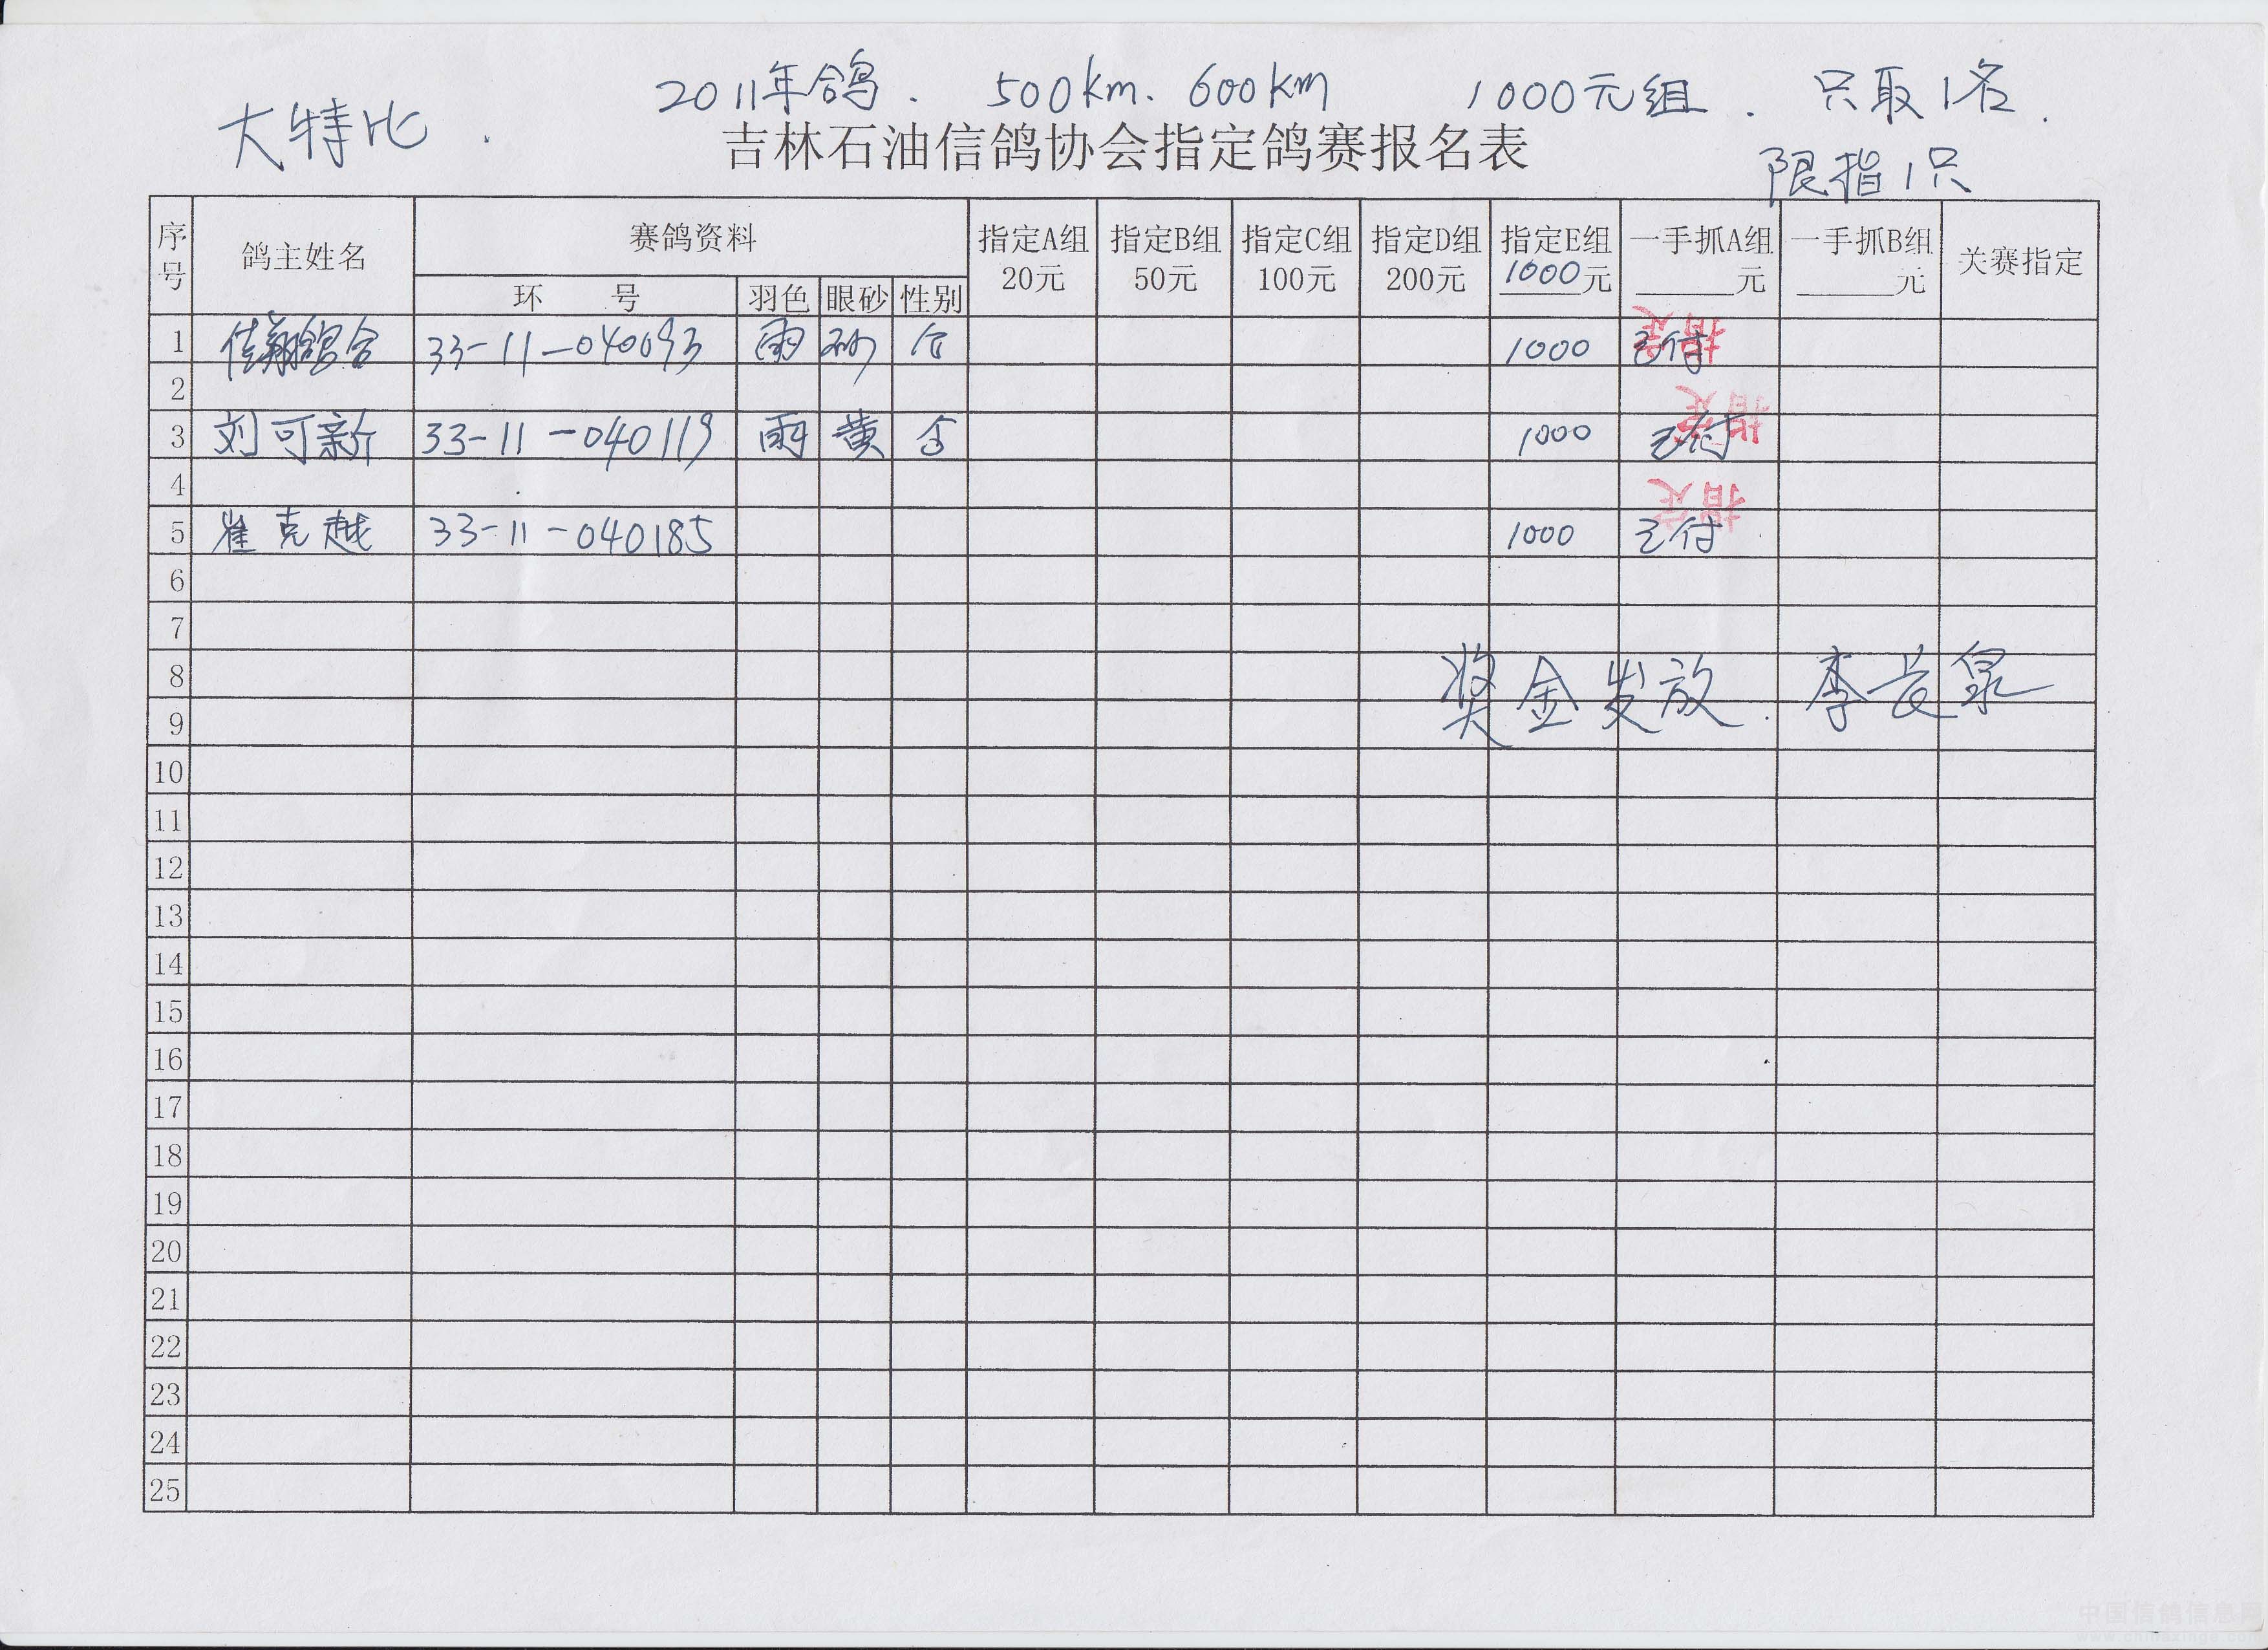 大特比.
2011年鸽. 500km. 600km 1000元组. 只取1名.
吉林石油信鸽协会指定鸽赛报名表
限指1只
序号 鸽主姓名 赛鸽资料 指定A组 20元 指定B组 50元 指定C组 100元 指定D组 200元 指定E组 1000元 一手抓A组 元 一手抓B组 元 关赛指定
环 号 羽色 眼砂 性别
1 佳翔鸽舍 33-11-040093 雨 砂 1000 已付 指定
2
3 刘可新 33-11-040119 雨 黄 1000 已付 指定
4
5 崔克越 33-11-040185 1000 已付 指定
6
7
8 奖金发放. 李长泉
9
10
11
12
13
14
15
16
17
18
19
20
21
22
23
24
25
中国信鸽信息网